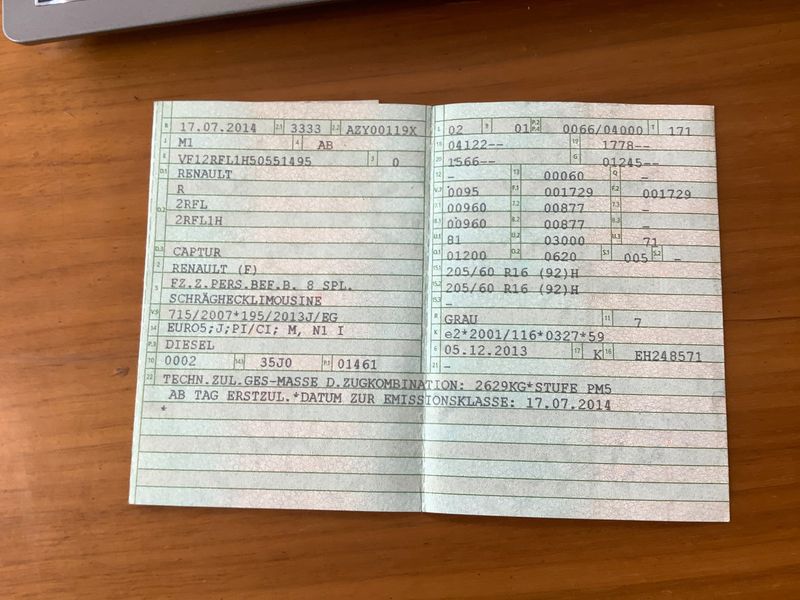 B 17.07.2014 2.1 3333 2.2 AZY00119X
J M1 4 AB
E VF12RFL1H50551495 3 0
D.1 RENAULT
R
D.2 2RFL
2RFL1H
D.3 CAPTUR
2 RENAULT (F)
5 FZ.Z.PERS.BEF.B. 8 SPL.
SCHRÄGHECKLIMOUSINE
V.9 715/2007*195/2013J/EG
14 EURO5;J;PI/CI; M, N1 I
P.3 DIESEL
10 0002 14.1 35J0 P.1 01461
22 TECHN.ZUL.GES-MASSE D.ZUGKOMBINATION: 2629KG*STUFE PM5
AB TAG ERSTZUL.*DATUM ZUR EMISSIONSKLASSE: 17.07.2014
*
L 02 9 01 P.2 P.4 0066/04000 T 171
18 04122-- 19 1778--
20 1566-- G 01245--
12 - 13 00060 Q -
V.7 0095 F.1 001729 F.2 001729
7.1 00960 7.2 00877 7.3 -
8.1 00960 8.2 00877 8.3 -
U.1 81 U.2 03000 U.3 71
O.1 01200 O.2 0620 S.1 005 S.2 -
15.1 205/60 R16 (92)H
15.2 205/60 R16 (92)H
15.3 -
R GRAU 11 7
K e2*2001/116*0327*59
6 05.12.2013 17 K 16 EH248571
21 -